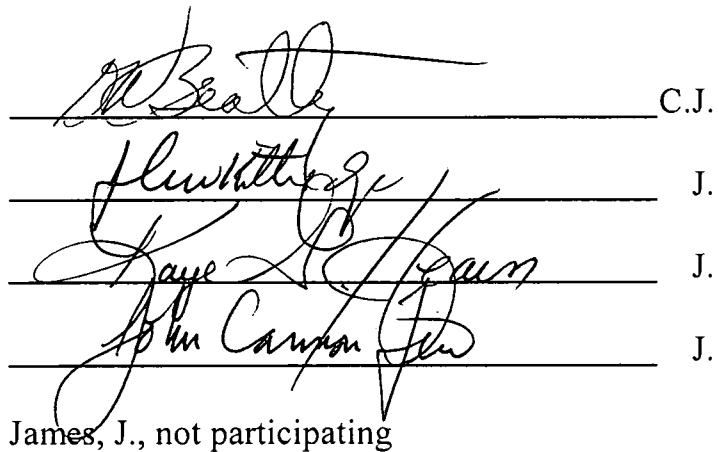 Beatty C.J.
Kittredge J.
Kaye G. Hearn J.
John Cannon Few J.
James, J., not participating